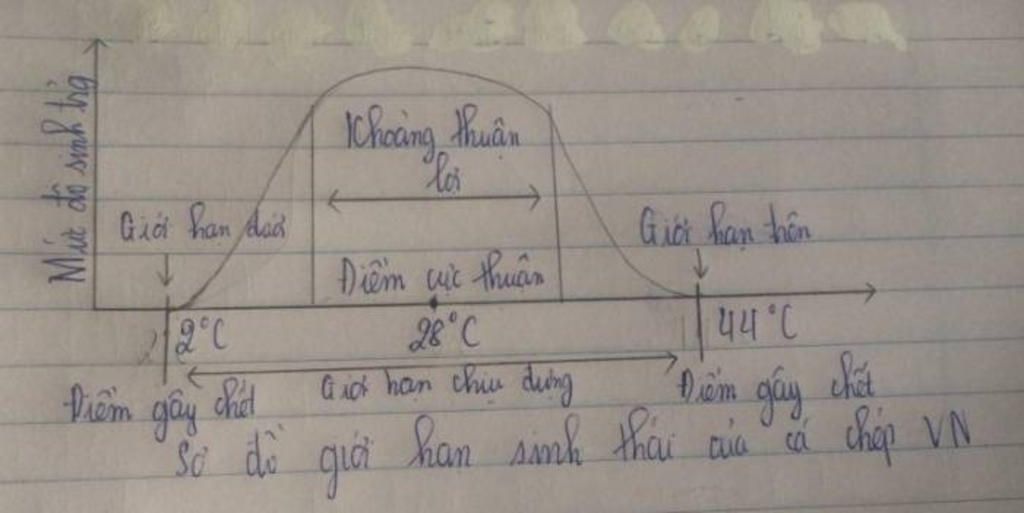 Mức độ sinh trg
Khoảng thuận
lợi
Giới hạn dưới
Giới hạn trên
Điểm cực thuận
2°C
28°C
44°C
Giới hạn chịu đựng
Điểm gây chết
Điểm gây chết
Sơ đồ giới hạn sinh thái của cá chép VN